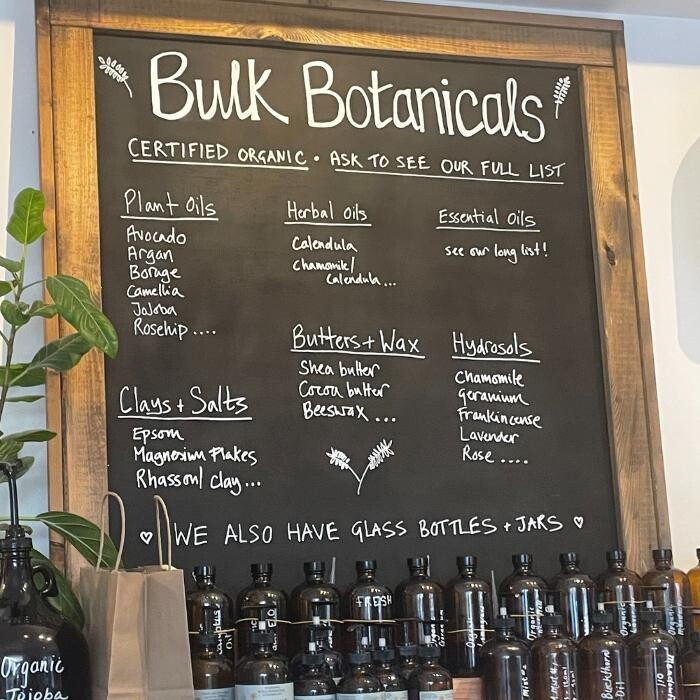 Bulk Botanicals
CERTIFIED ORGANIC • ASK TO SEE OUR FULL LIST
Plant Oils
Avocado
Argan
Borage
Camellia
Jojoba
Rosehip ....
Herbal Oils
Calendula
Chamomile/
Calendula...
Essential Oils
see our long list!
Butters + Wax
Shea butter
Cocoa butter
Beeswax ...
Hydrosols
Chamomile
Geranium
Frankincense
Lavender
Rose ....
Clays + Salts
Epsom
Magnesium Flakes
Rhassoul clay...
♡ WE ALSO HAVE GLASS BOTTLES + JARS ♡
FRESH
Organic
Jojoba